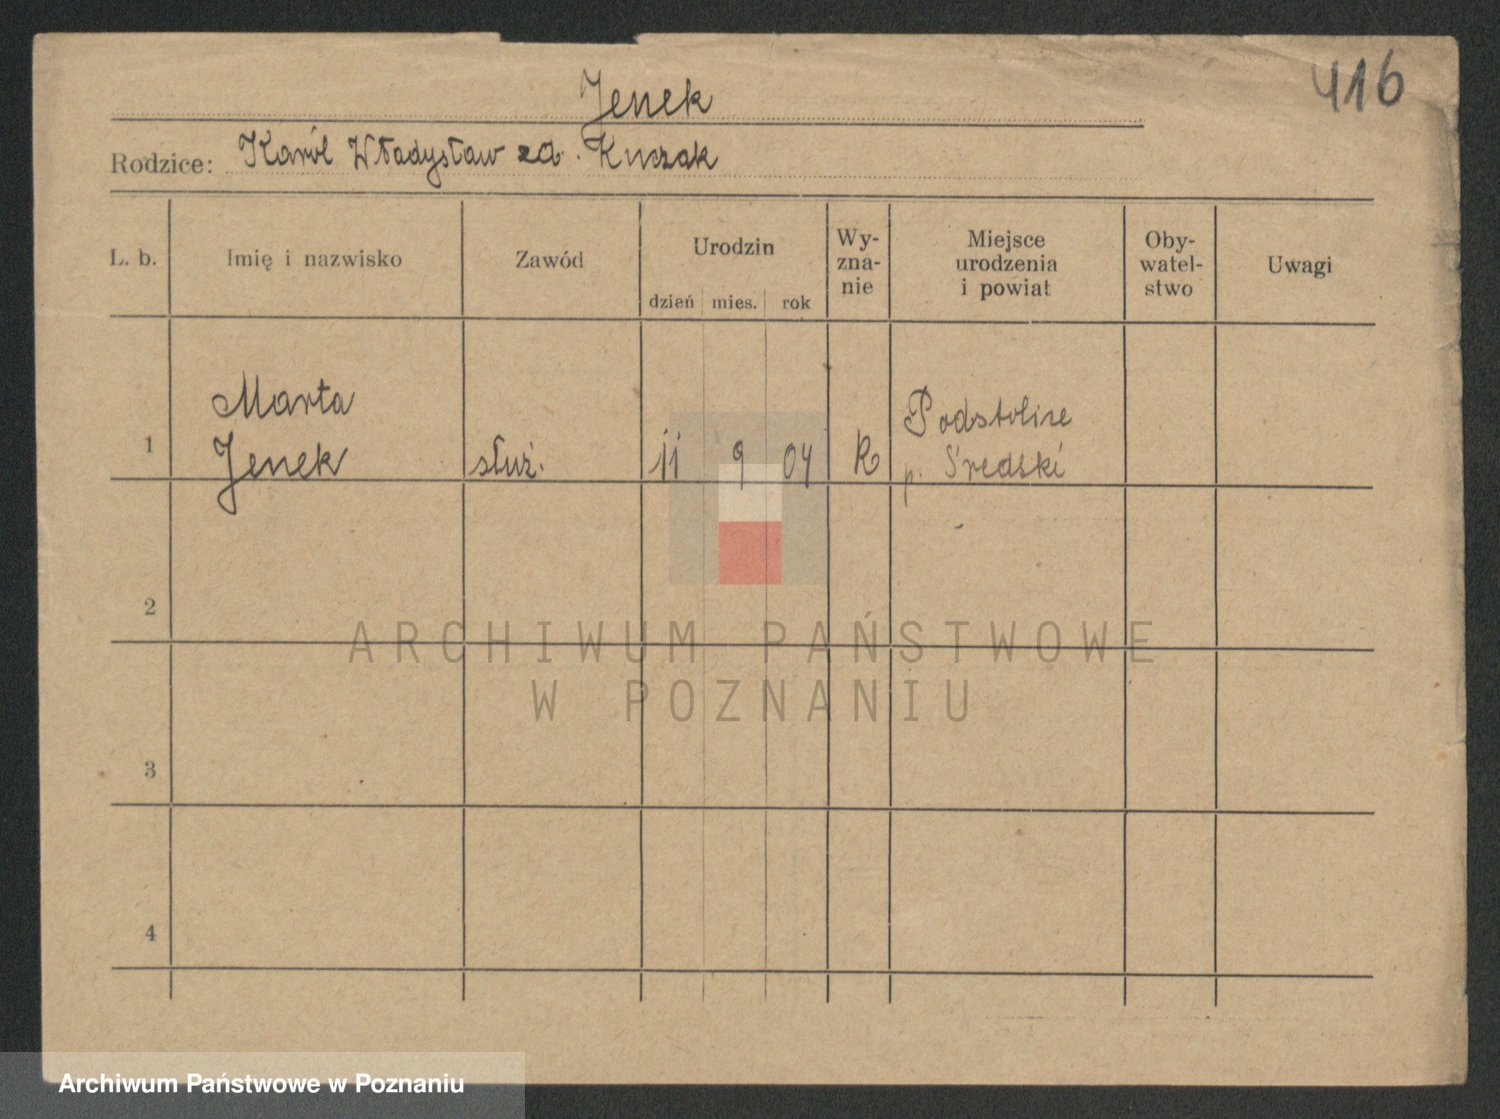 416
Jenek
Rodzice: Karól Władysław zd. Kuczak
L. b. Imię i nazwisko Zawód Urodzin dzień mies. rok Wy-zna-nie Miejsce urodzenia i powiat Oby-watel-stwo Uwagi
Marta Podstolice
1 Jenek służ. 11 9 04 R p. Średski
2
ARCHIWUM PAŃSTWOWE
W POZNANIU
3
4
Archiwum Państwowe w Poznaniu